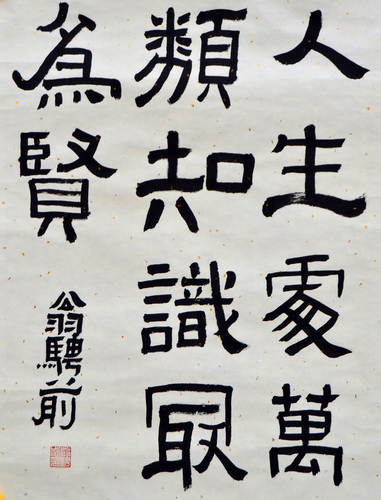 人生處萬
類知識冣
為賢
翁騁前